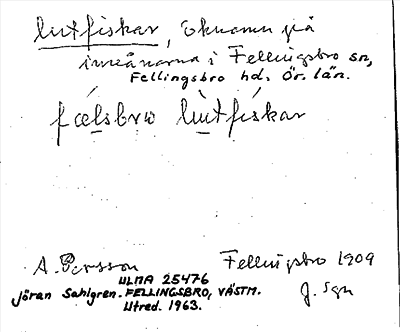 lutfiskar, öknamn på
invånarna i Fellingsbro sn,
Fellingsbro hd. Ör. län.
fælsbrω lutfiskar
A. Persson Fellingsbro 1909
ULMA 25476
Jöran Sahlgren. FELLINGSBRO, VÄSTM. J. Sgn
Utred. 1963.